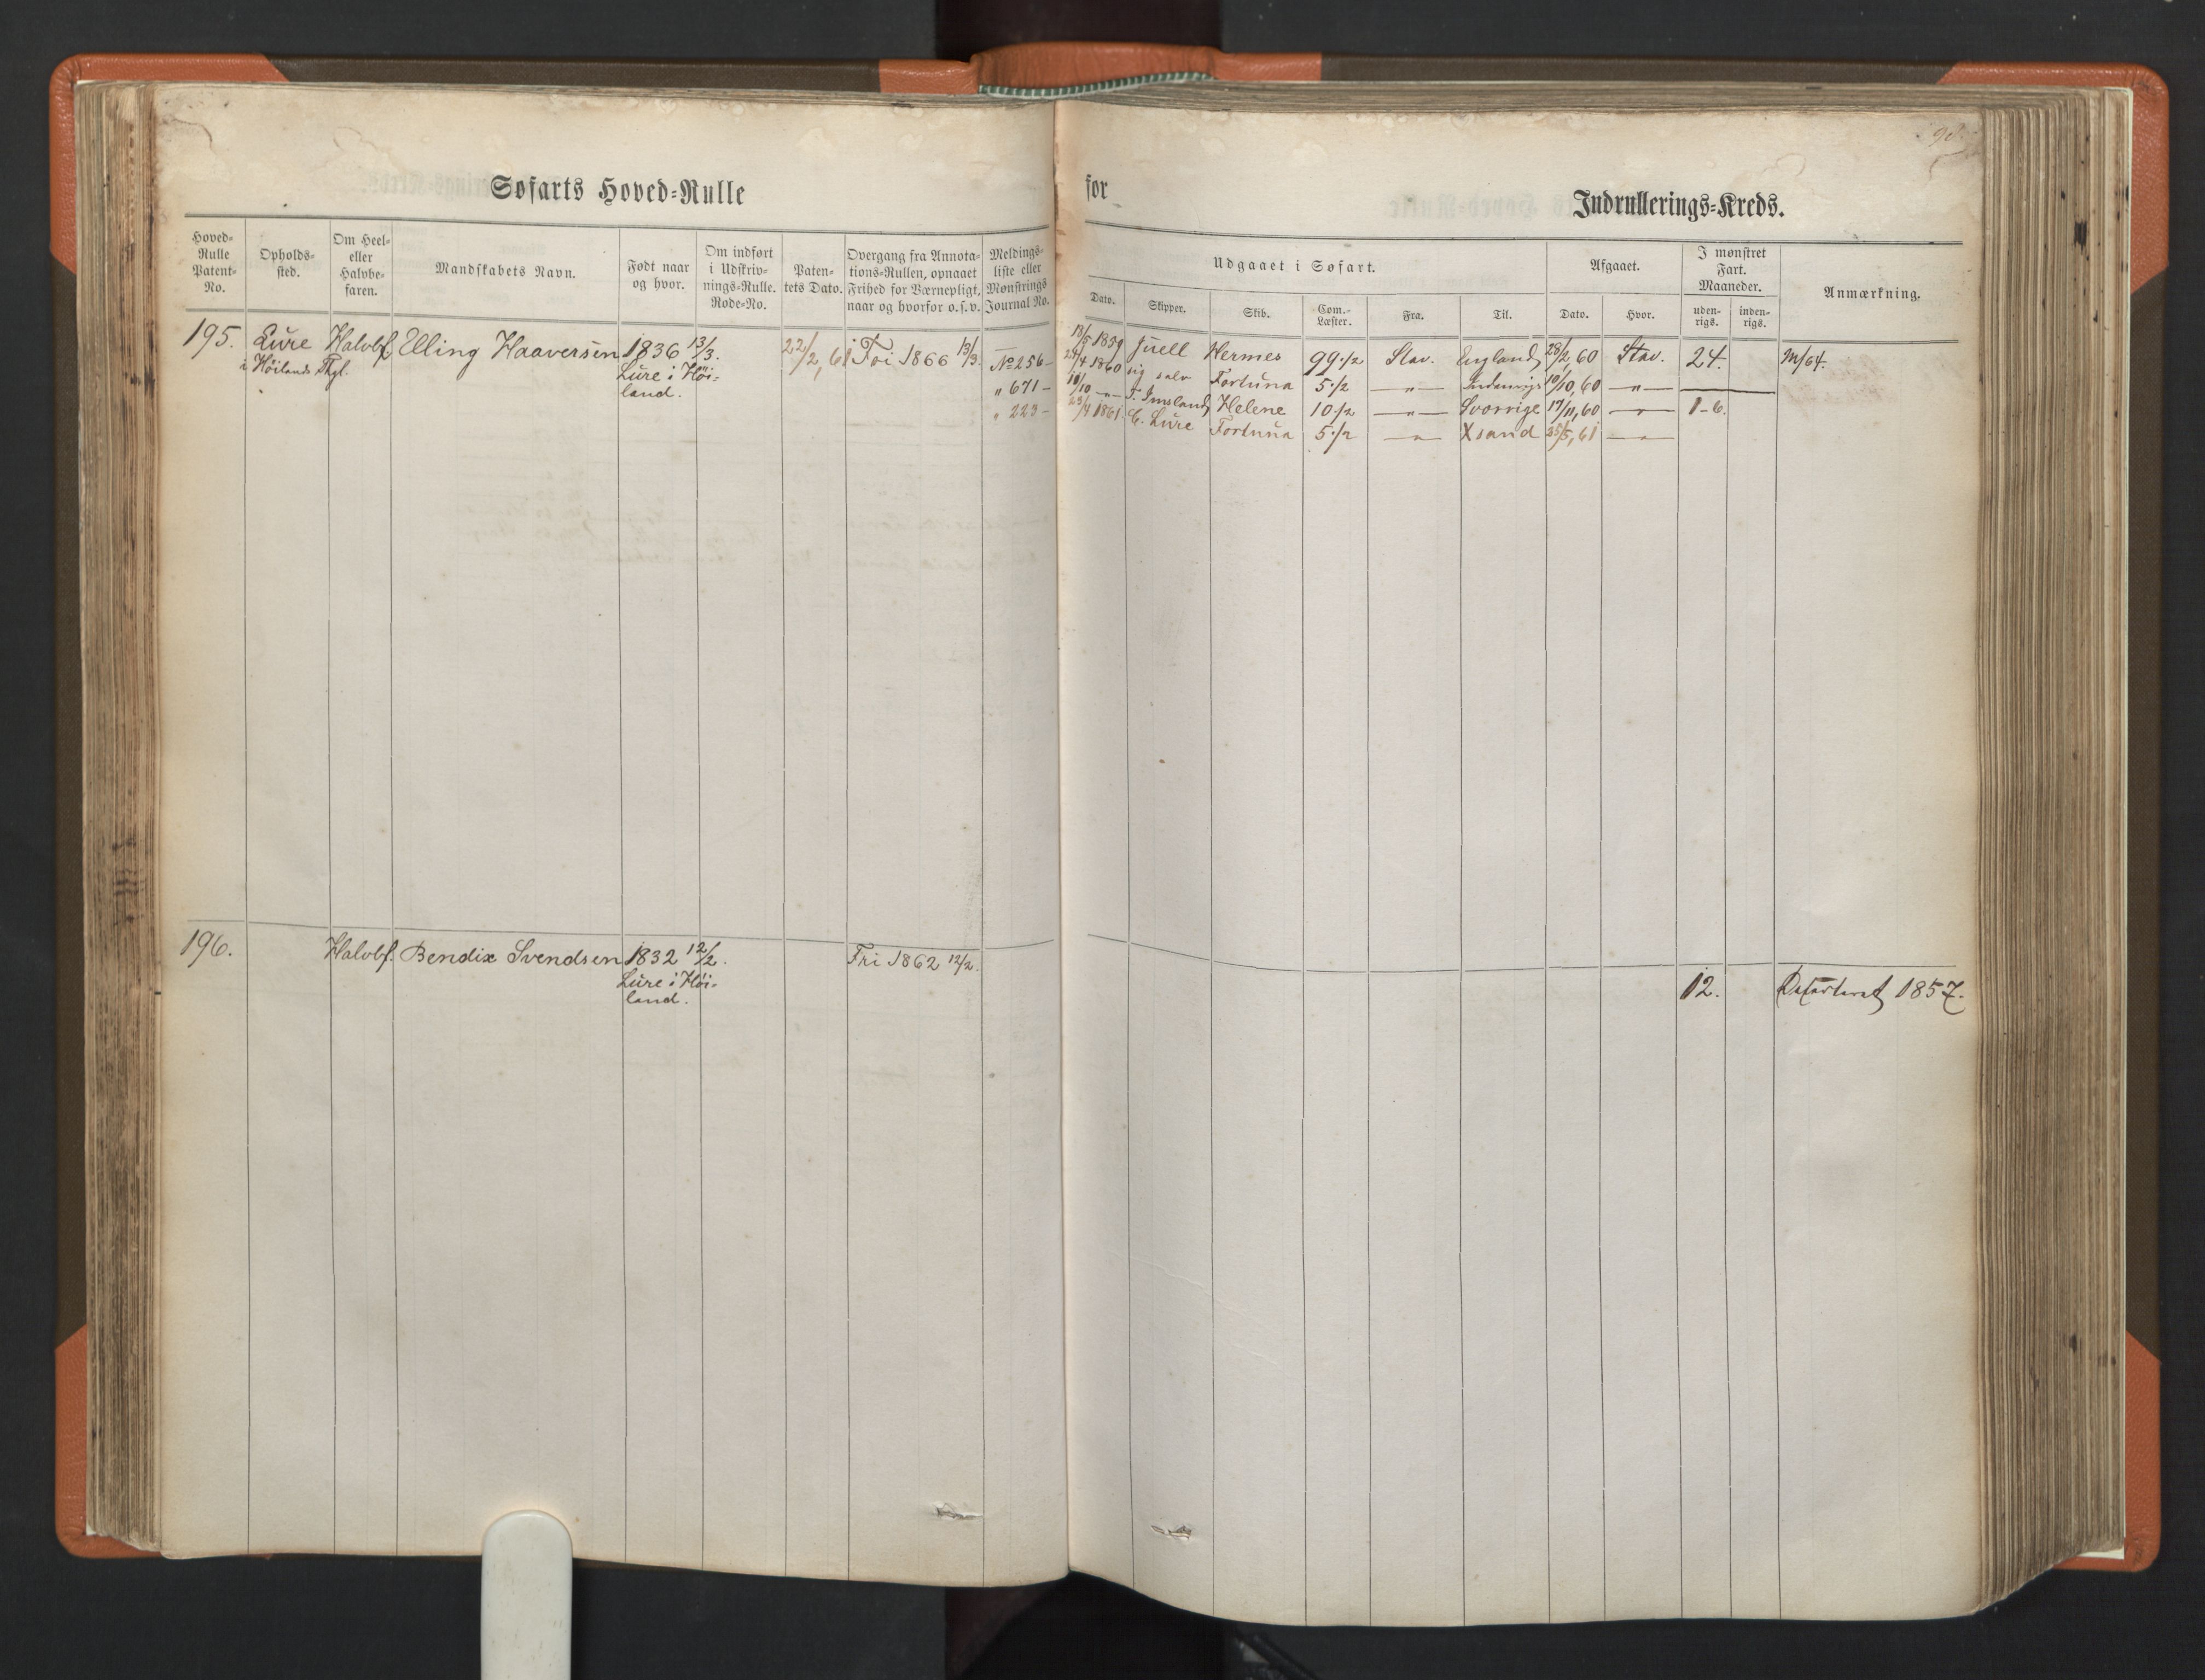 Søfarts Hoved-Rulle
Hoved-Rulle Patent-No.
Opholds-sted.
Om Heel- eller Halvbe-faren.
Mandskabets Navn.
Født naar og hvor.
Om indført i Udskriv-nings-Rulle. Rode-No.
Paten-tets Dato.
Overgang fra Annota-tions-Rullen, opnaaet Frihed for Værnepligt, naar og hvorfor o.s.v.
Meldings-liste eller Mønstrings Journal No.
195. Lure Halvbf. Elling Haaversen 1836 13/3. 22/2, 61 Fri 1866 13/3. No 256 -
i Höilands Thgl. Lure i Höi-
land. " 671 -
" 223 -
196. Halvbf. Bendix Svendsen 1832 12/2. Fri 1862 12/2.
Lure i Höi-
land.
for Indrullerings-Kreds.
Udgaaet i Søfart.
Afgaaet.
I mønstret Fart. Maaneder.
Anmærkning.
Dato. Skipper. Skib. Com.-Læster. Fra. Til. Dato. Hvor. uden-rigs. inden-rigs.
18/5 1859 Juell Hermes 99 1/2 Stav. England 28/2, 60 Stav. 24. M/64.
/4 1860 sig selv Fortuna 5 1/2 — " — Indenrigs 10/10, 60 — " —
10/10 — " — T. Imsland Helene 10 1/2 — " — Sverrige 17/11, 60 — " — 1-6.
23/4 1861. C. Lure Fortuna 5 1/2 — " — Xsand 25/5, 61 — " —
12. Deserteret 1857.